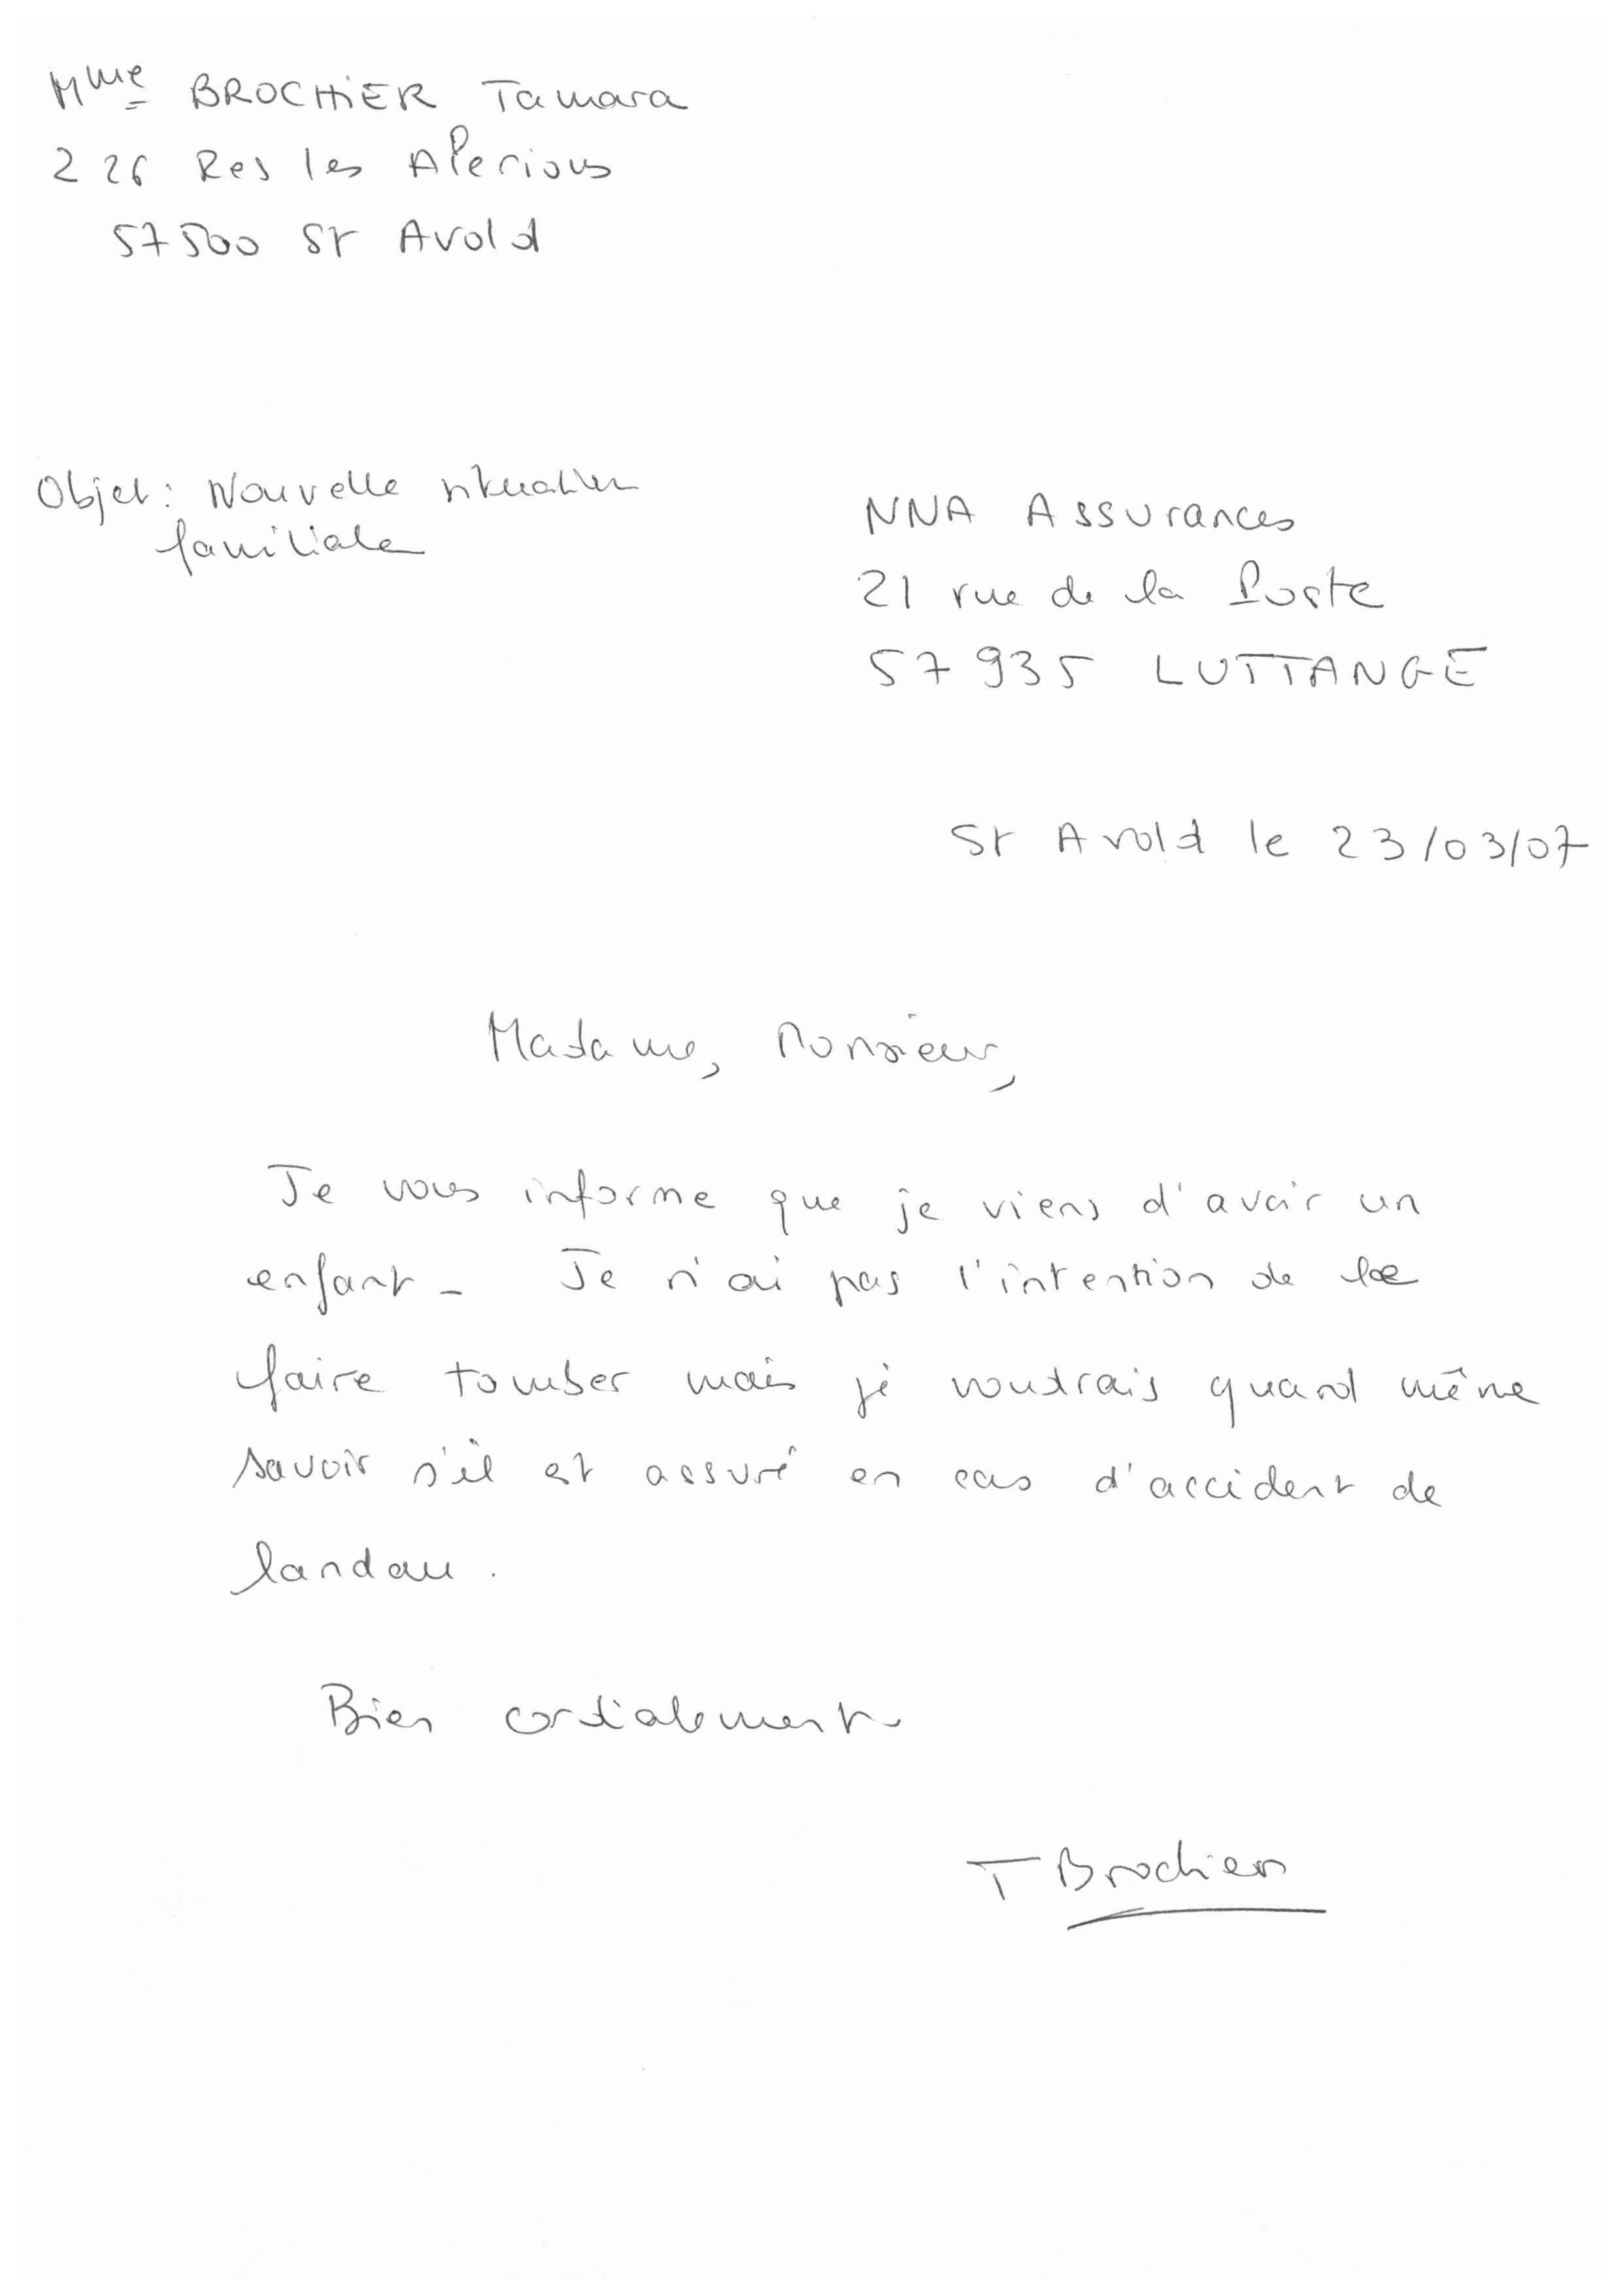 Mme BROCHiER Tamara
226 Res les Alerions
57500 St Avold
Objet : Nouvelle situation
familiale
NNA Assurances
21 rue de la Poste
57935 LUTTANGE
St Avold le 23/03/07
Madame, Monsieur,
Je vous informe que je viens d'avoir un
enfant - Je n'ai pas l'intention de le
faire tomber mais je voudrais quand même
savoir s'il est assuré en cas d'accident de
landau.
Bien cordialement
T Brochier